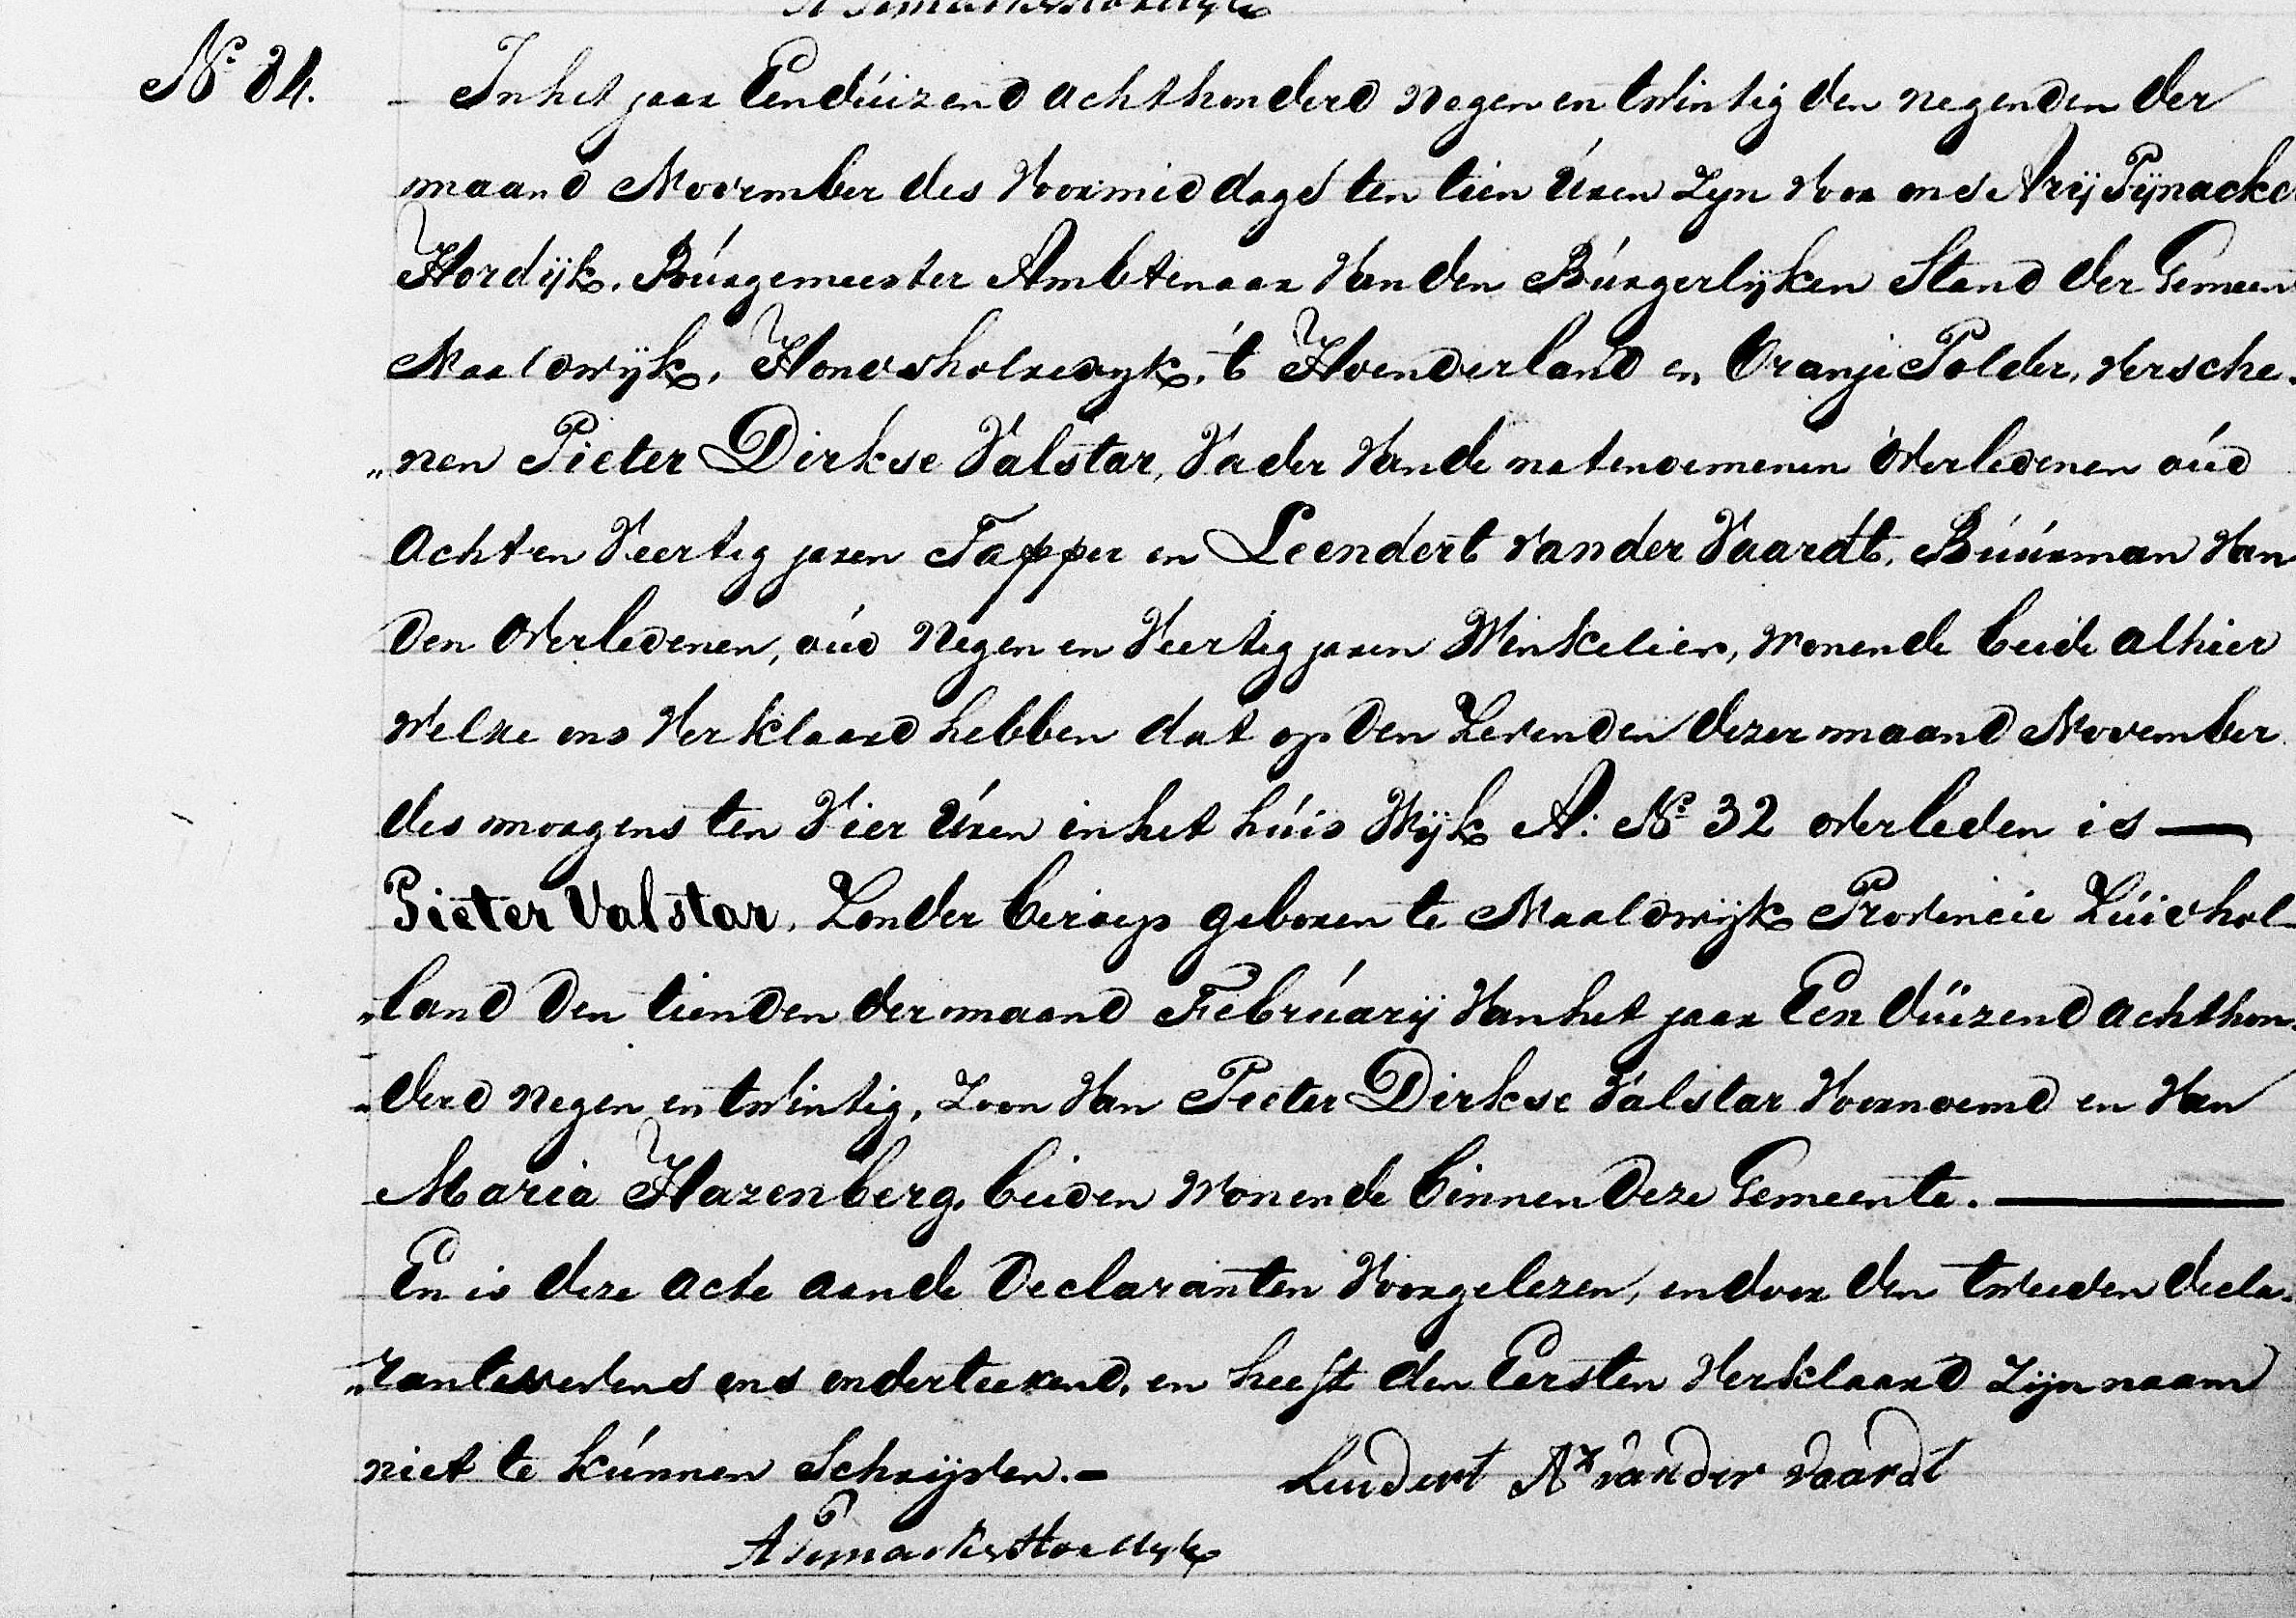 No 84.
In het jaar Eenduizend achthonderd negen en twintig den negenden der
maand November des Voormiddags ten tien Uren Zyn Voor ons Arij Pijnacke
Hordijk, Burgemeester Ambtenaar Van den Burgerlyken Stand der Gemeen
Naaldwijk, Honsholredyk, 't Hoenderland en Oranje Polder, Versche-
„nen Pieter Dirkse Valstar, Vader Van de natenoemenen Overledenen oud
acht en Veertig jaren Tapper en Leendert van der Vaardt, Buurman Van
den Overledenen, oud Negen en Veertig jaren Winkelier, Wonende beide alhier
Welke ons Verklaard hebben dat op den Zevenden dezer maand November
des morgens ten Vier Uren in het huis Wijk A: No 32 overleden is —
Pieter Valstar, Zonder beroep geboren te Naaldwijk Provincie Zuidhol-
„land den tienden der maand Februarij Van het jaar Een duizend achthon-
„derd negen en twintig, Zoon Van Pieter Dirkse Valstar Voornoemd en Van
Maria Hazenberg, beiden Wonende binnen deze Gemeente. —
En is deze acte aan de Declaranten Voorgelezen, en door den tweeden decla-
„rant nevens ons onderteekend, en heeft den Eersten Verklaard Zijn naam
niet te kunnen Schrijven.-
Leendert Az van der Vaardt
A Pijnacker Hordijk